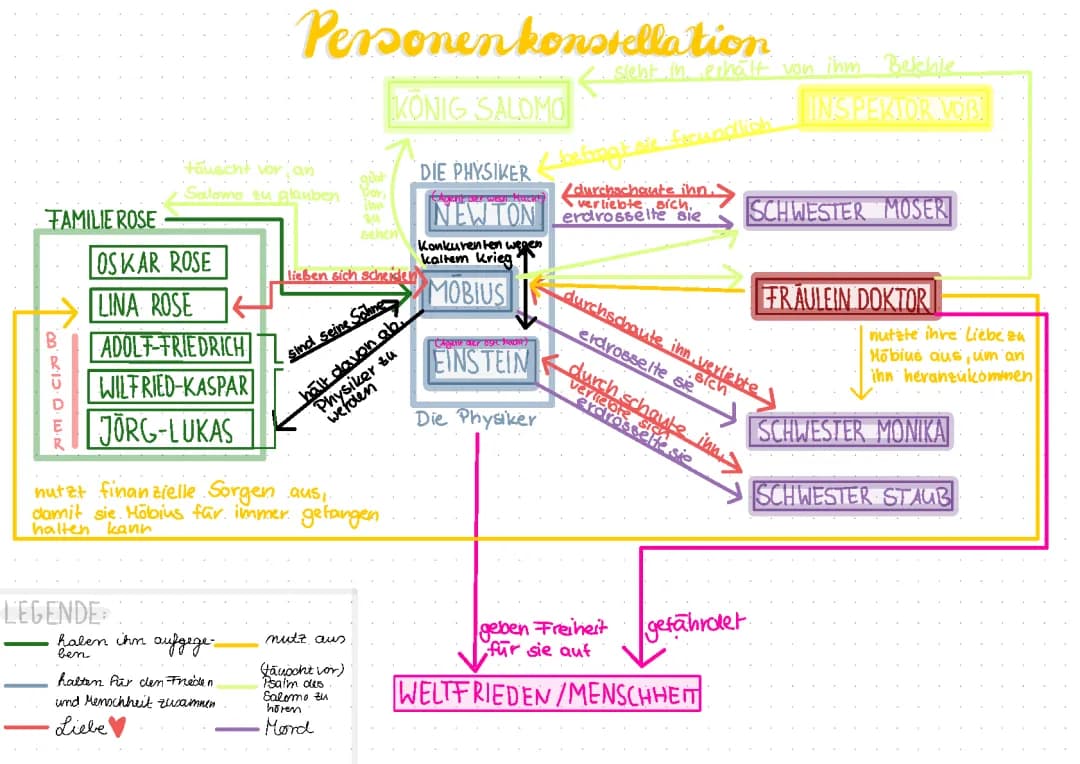 Personenkonstellation
sieht in, erhält von ihm Befehle
KÖNIG SALOMO
INSPEKTOR VOß
befragt sie freundlich
täuscht vor, an
Salomo zu glauben
gibt
vor, ihn
zu
sehen
DIE PHYSIKER
(Agent der west. Macht)
NEWTON
durchschaute ihn,
verliebte sich,
erdrosselte sie
SCHWESTER MOSER
FAMILIE ROSE
OSKAR ROSE
LINA ROSE
BRÜDER
ADOLF-FRIEDRICH
WILFRIED-KASPAR
JÖRG-LUKAS
ließen sich scheiden
sind seine Söhne
hält davon ab,
Physiker zu
werden
Konkurenten wegen
kaltem Krieg
MÖBIUS
(Agent der öst. Macht)
EINSTEIN
Die Physiker
FRÄULEIN DOKTOR
durchschaute ihn, verliebte
sich
erdrosselte sie
nutzte ihre Liebe zu
Möbius aus, um an
ihn heranzukommen
durchschaute ihn,
verliebte sich
erdrosselte sie
SCHWESTER MONIKA
SCHWESTER STAUB
nutzt finanzielle Sorgen aus,
damit sie Möbius für immer gefangen
halten kann
geben Freiheit
für sie auf
gefährdet
WELTFRIEDEN/MENSCHHEIT
LEGENDE:
haben ihn aufgege-
ben
nutz aus
halten für den Frieden
und Menschheit zusammen
(täuscht vor)
Psalm des
Salomo zu
hören
Liebe
Mord